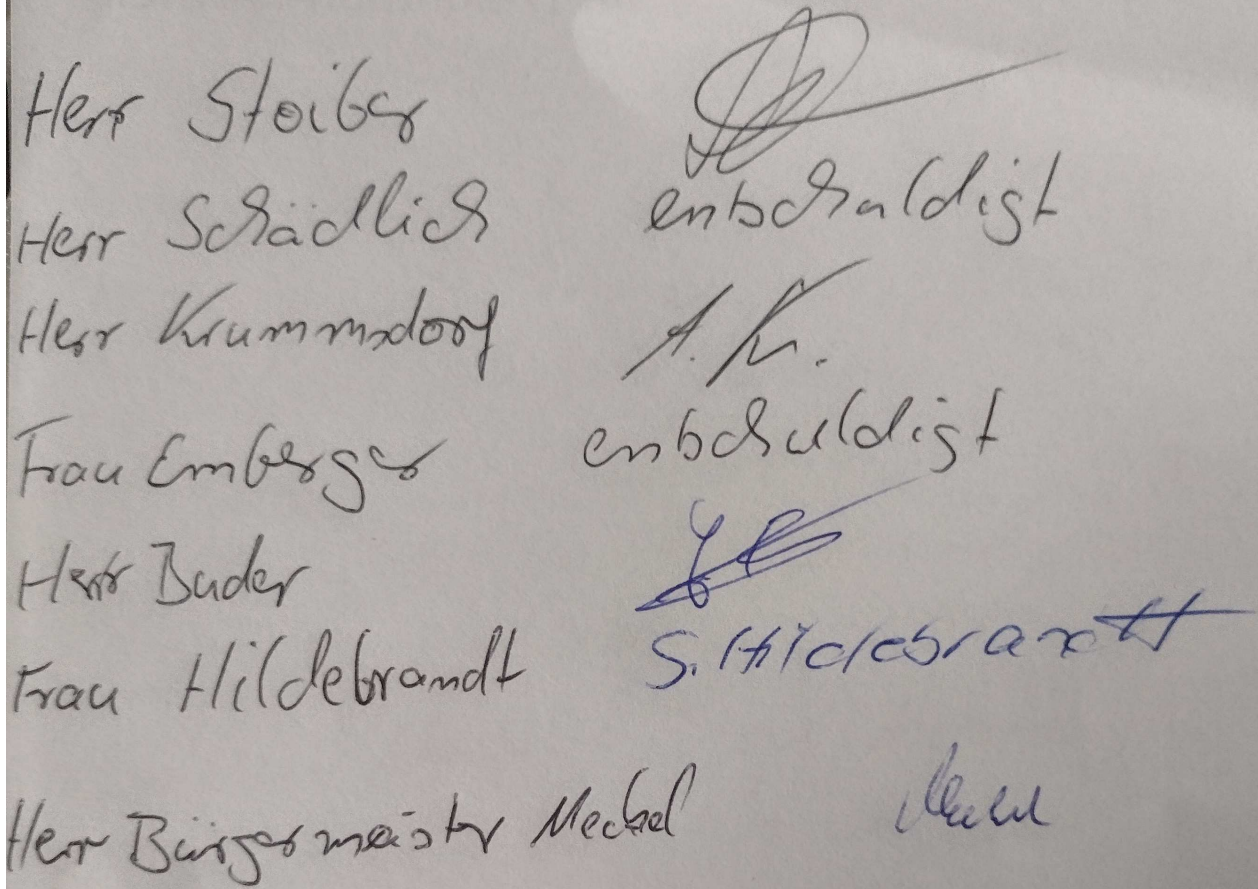 Herr Stoiber
Herr Schädlich entschuldigt
Herr Krummsdorf A. K.
Frau Emberger entschuldigt
Herr Bader
Frau Hildebrandt S. Hildebrandt
Herr Bürgermeister Meckel Meckel